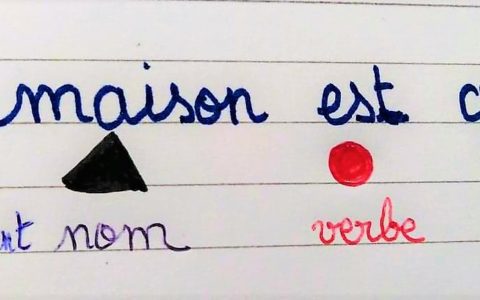 maison est
nom verbe